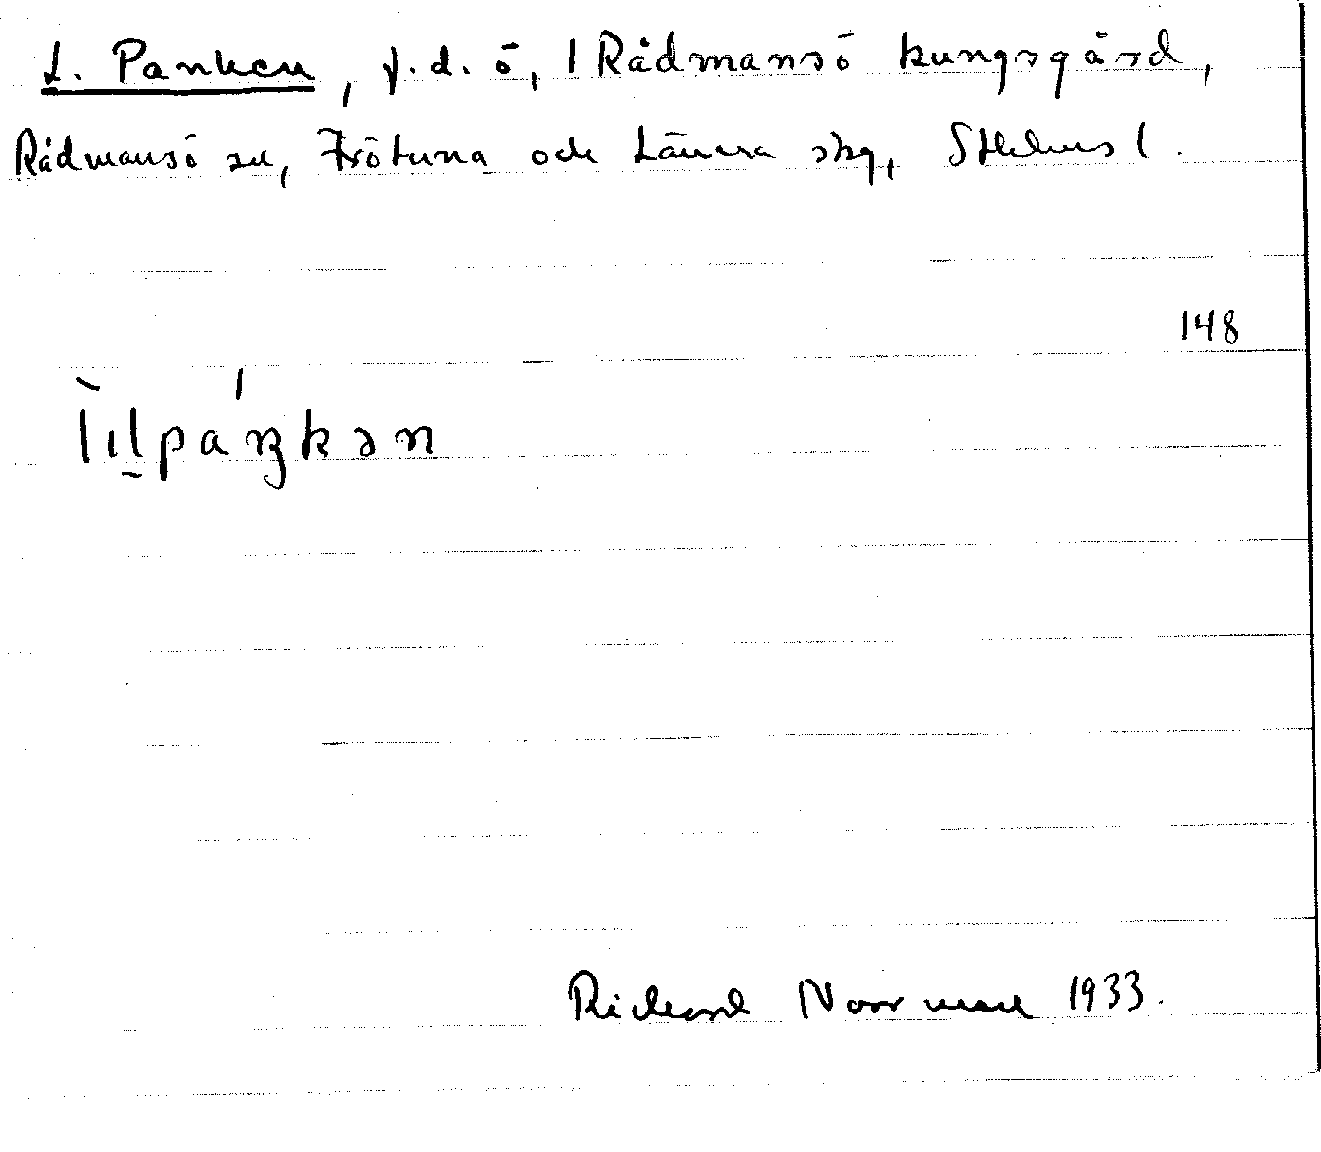 L. Panken, f.d. ö, / Rådmansö kungsgård,
Rådmansö sn, Frötuna och Länna skg, Sthlms l.
148
lılpáŋkən
Richard Norrman 1933.